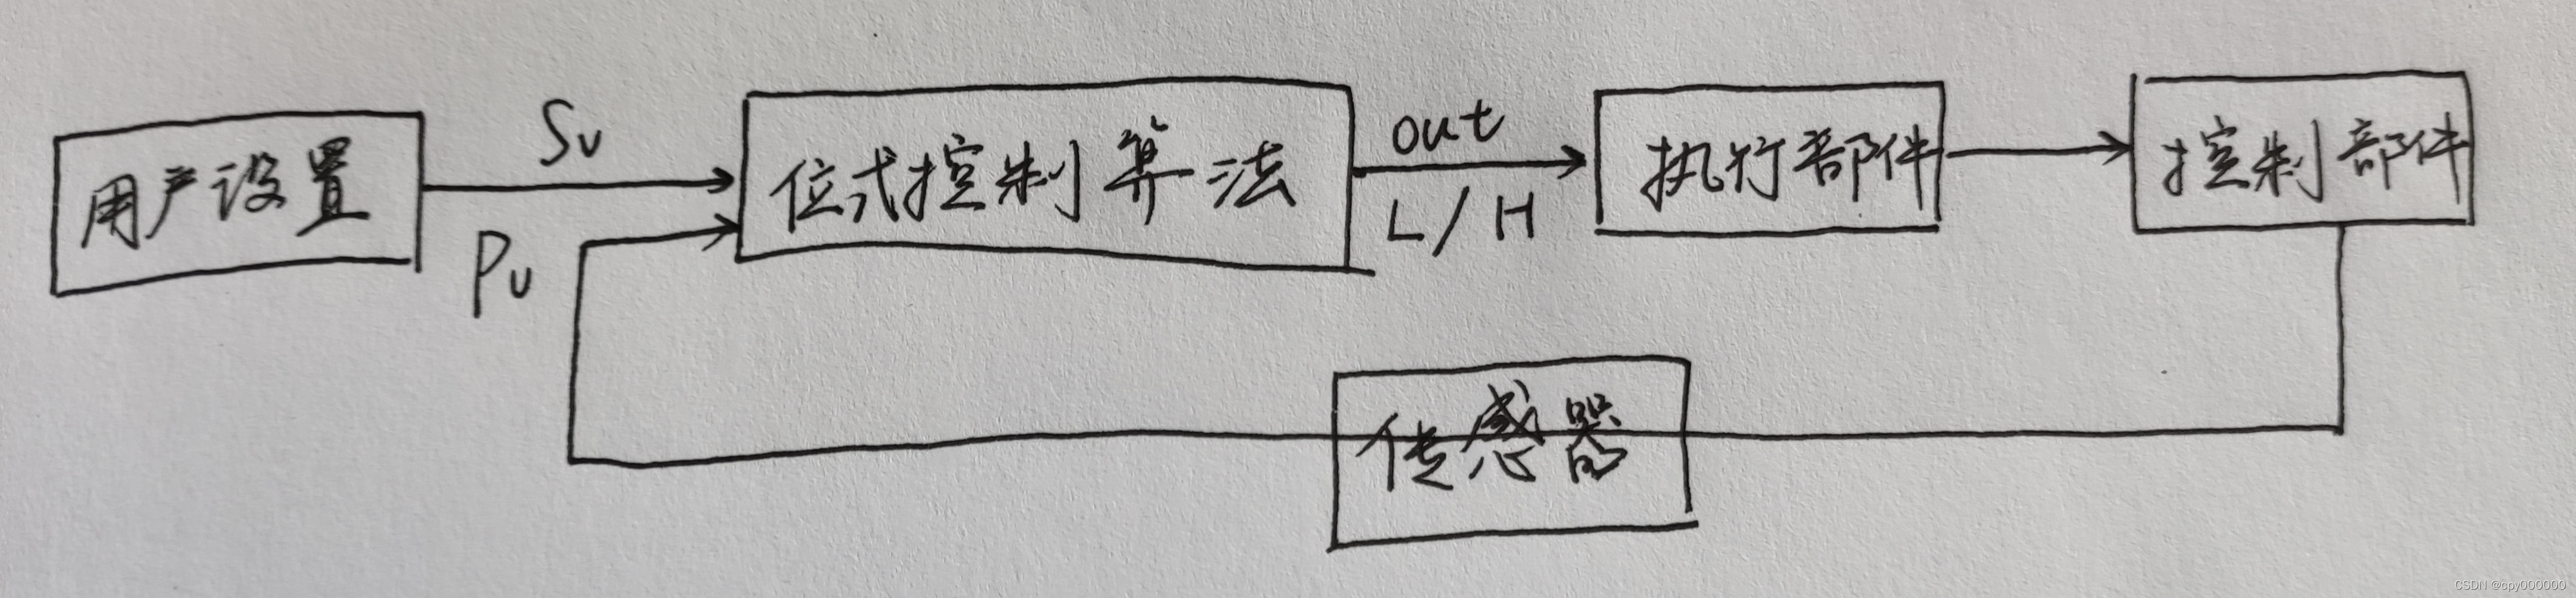 用户设置
Sv
Pv
位式控制算法
out
L/H
执行部件
控制部件
传感器
CSDN @cpy000000